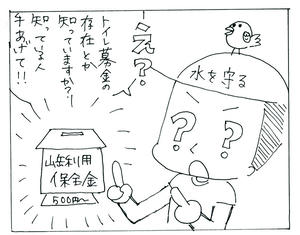 え?
トイレ募金の
存在とか
知っていますか?!
知っている人
手あげて!!
水を守る
? ?
山岳利用
保全金
500円〜